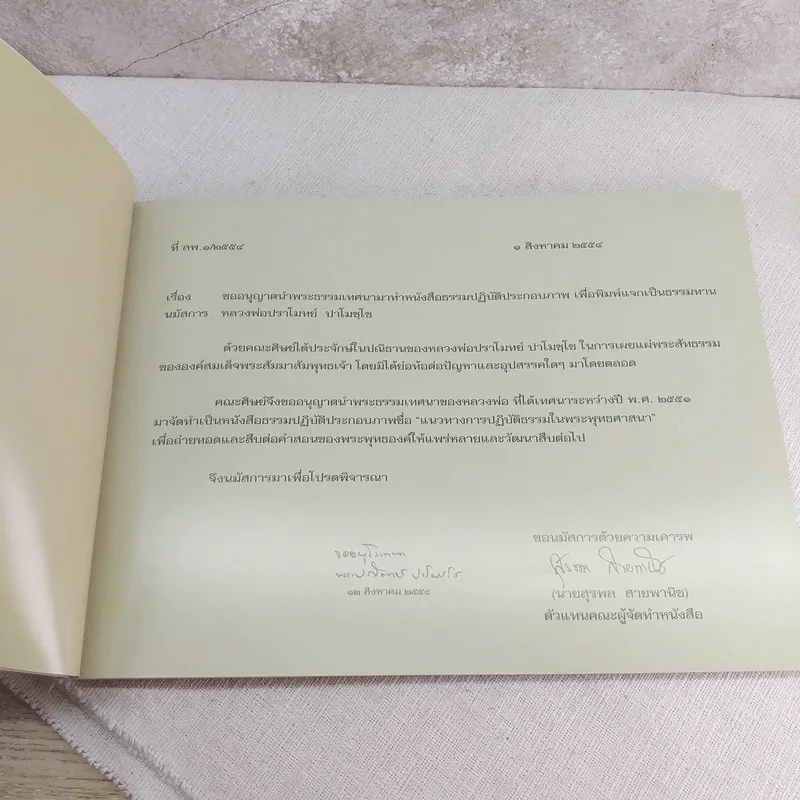 ที่ ลพ.๑/๒๕๕๔
๑ สิงหาคม ๒๕๕๔
เรื่อง ขออนุญาตนำพระธรรมเทศนามาทำหนังสือธรรมปฏิบัติประกอบภาพ เพื่อพิมพ์แจกเป็นธรรมทาน
นมัสการ หลวงพ่อปราโมทย์ ปาโมชฺโช
ด้วยคณะศิษย์ได้ประจักษ์ในปณิธานของหลวงพ่อปราโมทย์ ปาโมชฺโช ในการเผยแผ่พระสัทธรรม
ขององค์สมเด็จพระสัมมาสัมพุทธเจ้า โดยมิได้ย่อท้อต่อปัญหาและอุปสรรคใดๆ มาโดยตลอด
คณะศิษย์จึงขออนุญาตนำพระธรรมเทศนาของหลวงพ่อ ที่ได้เทศนาระหว่างปี พ.ศ. ๒๕๕๑
มาจัดทำเป็นหนังสือธรรมปฏิบัติประกอบภาพชื่อ “แนวทางการปฏิบัติธรรมในพระพุทธศาสนา”
เพื่อถ่ายทอดและสืบต่อคำสอนของพระพุทธองค์ให้แพร่หลายและวัฒนาสืบต่อไป
จึงนมัสการมาเพื่อโปรดพิจารณา
ขอนมัสการด้วยความเคารพ
ขออนุโมทนา
พระปราโมทย์ ปาโมชฺโช
๑๒ สิงหาคม ๒๕๕๔
สุรพล สายพานิช
(นายสุรพล สายพานิช)
ตัวแทนคณะผู้จัดทำหนังสือ